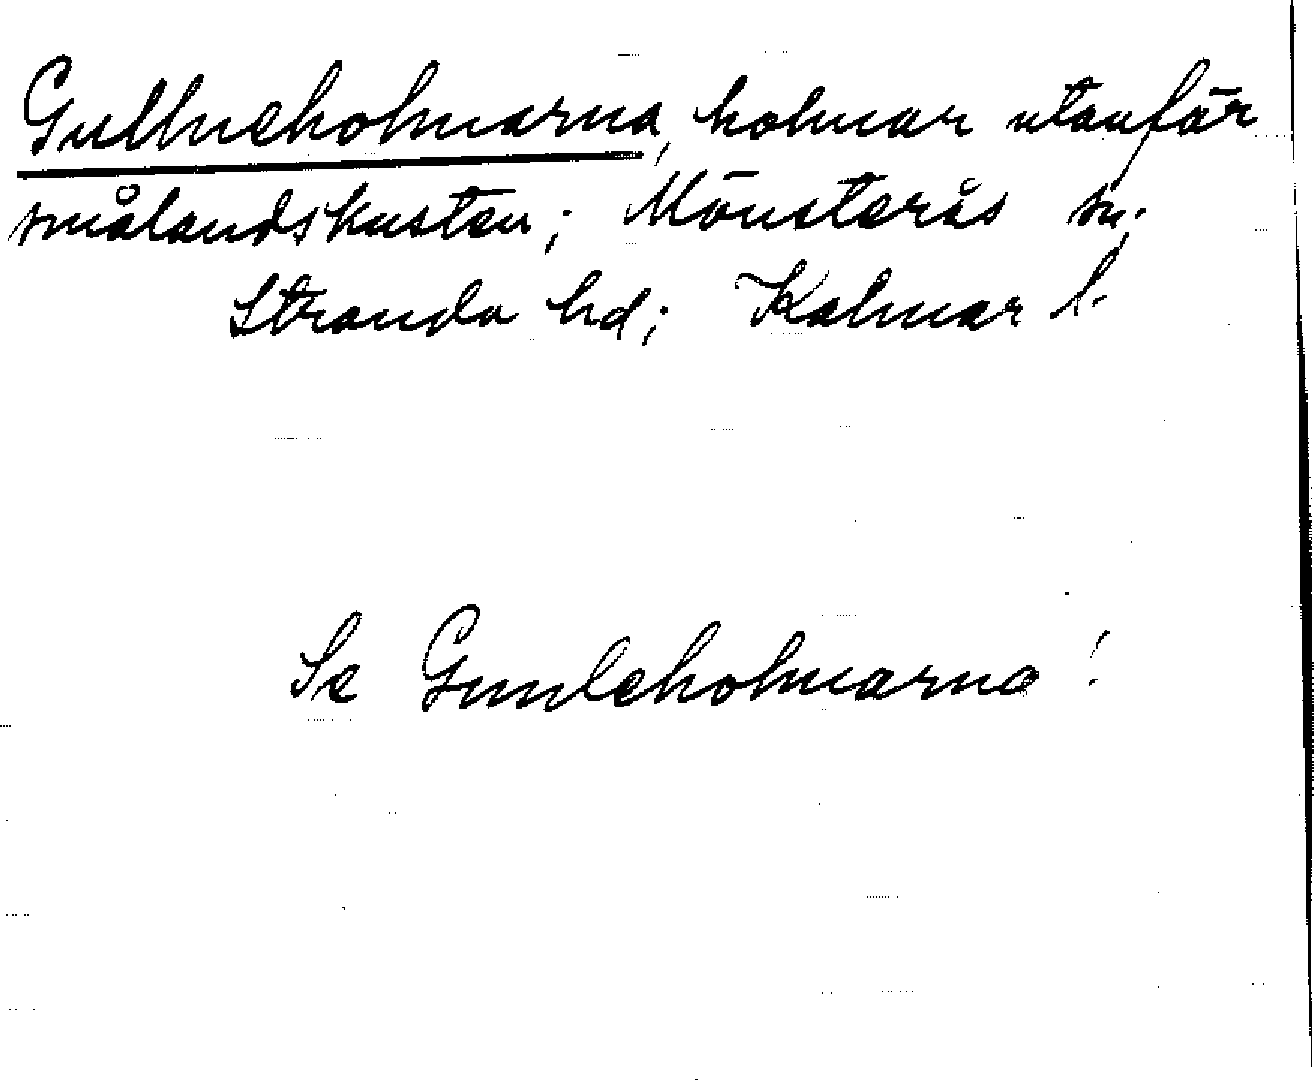 Gullneholmarna, holmar utanför
smålandskusten; Mönsterås sn;
Stranda hd; Kalmar l.
Se Gunleholmarna!